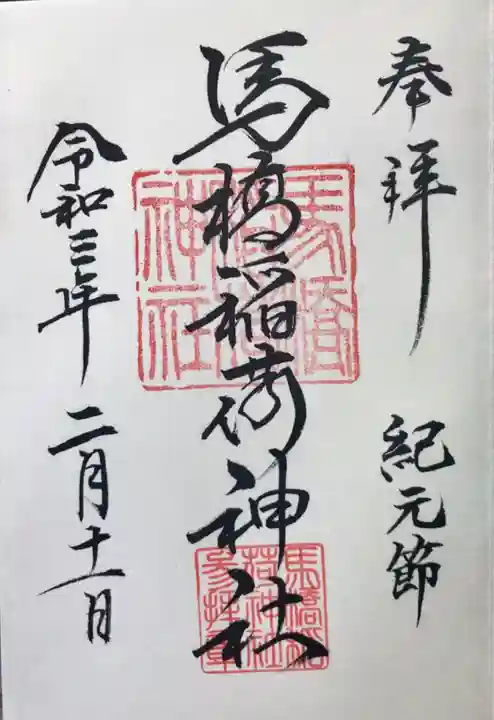 奉拝
紀元節
馬橋稲荷神社
令和三年
二月十一日
馬橋稲荷神社
馬橋稲荷神社参拝章